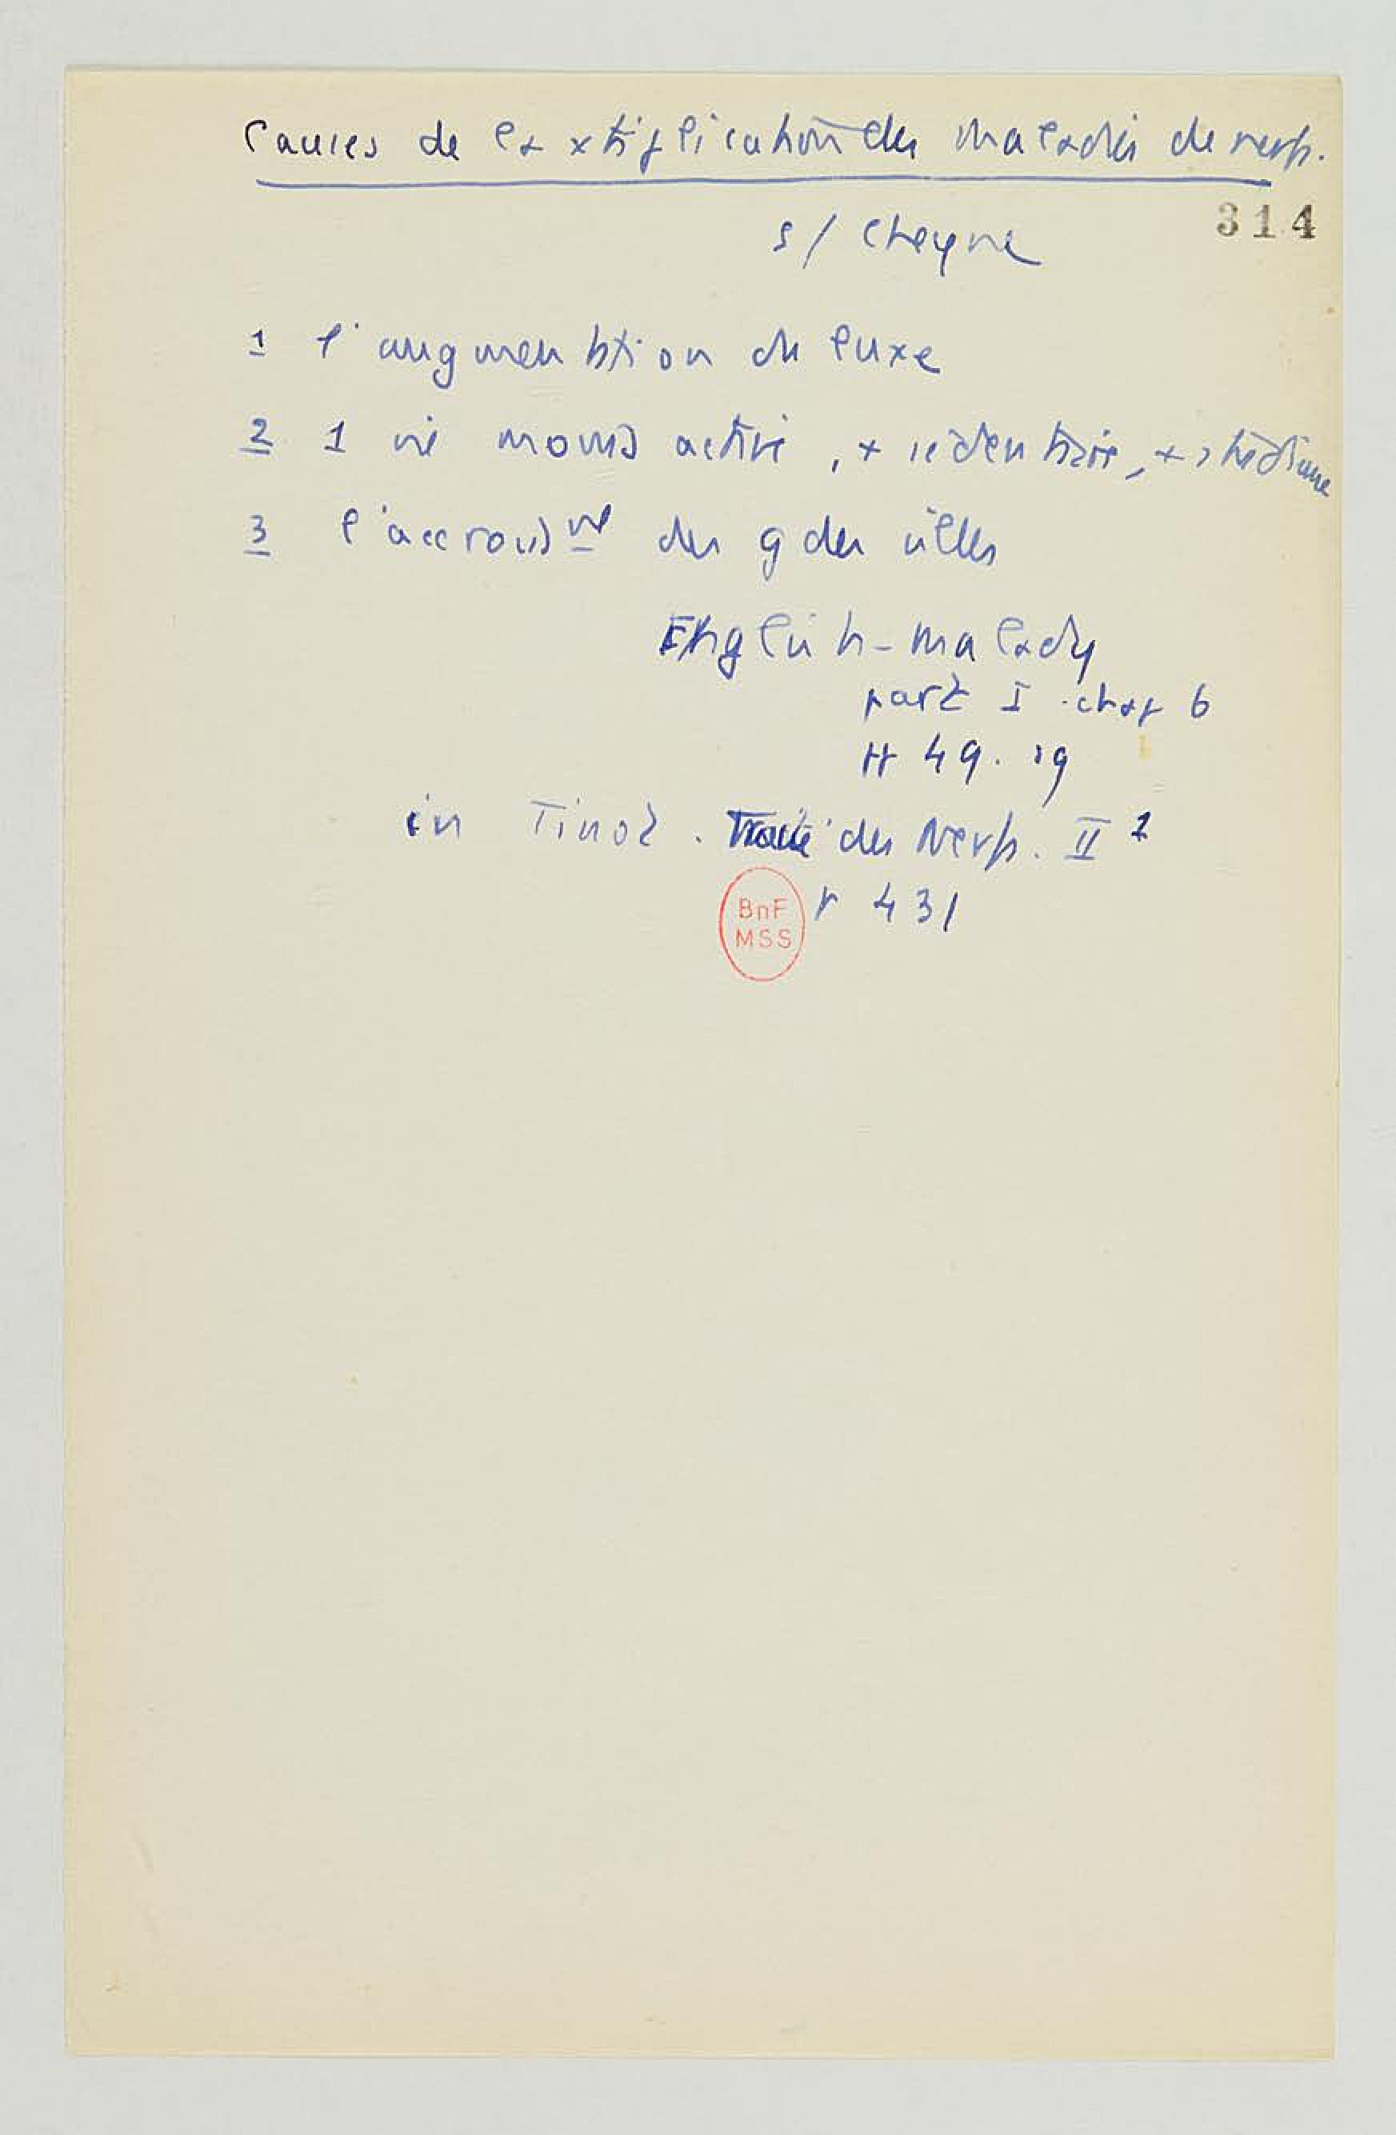 Causes de la xtiplication des maladies de nerfs.
314
s/ Cheyne
1 l'augmentation du luxe
2 1 vie moins active, + sédentaire, + studieuse
3 l'accroissnt des gdes villes
English-malady
part I chap 6
pp 49.
in Tissot. Traité des Nerfs. II 1
p 431
BnF
MSS